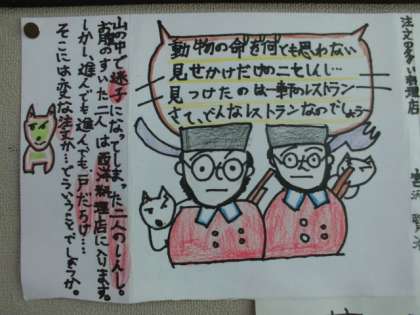 注文の多い料理店
宮沢賢治
動物の命を何でも思わない
見せかけだけのニセしんし…
見つけたのは一軒のレストラン
さて、どんなレストランなのでしょう
山の中で迷子になってしまった二人のしんし。
お腹のすいた二人は西洋料理店に入ります。
しかし、進んでも進んでも、戸だらけ…
そこには変な注文が…どういうことでしょうか。